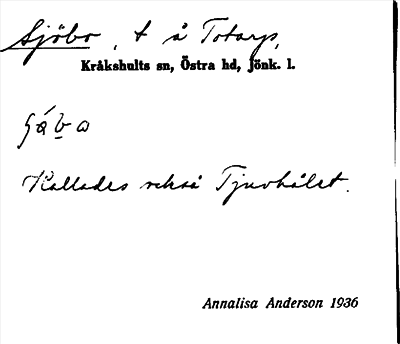 Sjöbo, t å Totarp,
Kråkshults sn, Östra hd, Jönk. l.
Kallades också Tjuvhålet.
Annalisa Anderson 1936